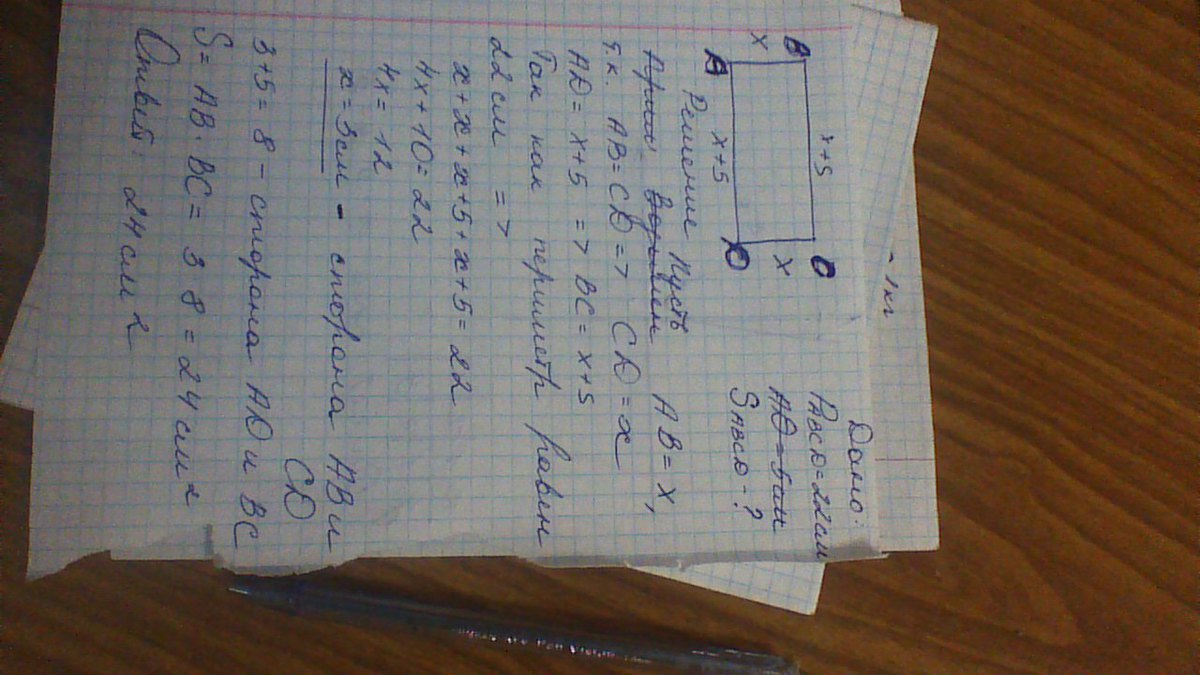 - 1кг
Дано:
PABCD=22см
AD=5см
SABCD-?
B x+5 C
x x
A x+5 D
Решение
Пусть
Возьмем AB=x,
т.к. AB=CD=> CD=x
AD=x+5 => BC=x+5
Так как периметр равен
22см =>
x+x+x+5+x+5=22
4x+10=22
4x=12
x=3см - сторона AB и
CD
3+5=8 - сторона AD и BC
S=AB·BC=3 8=24см²
Ответ: 24см2